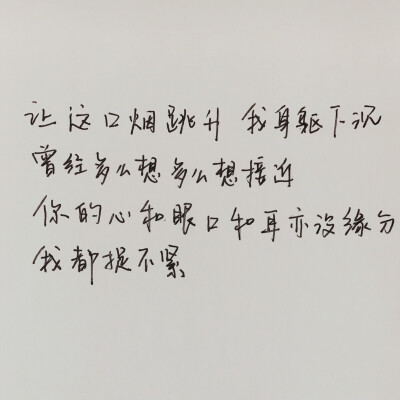 让这口烟跳升 我身躯下沉
曾经多么想多么想接近
你的心和眼口和耳亦没缘分
我都捉不紧